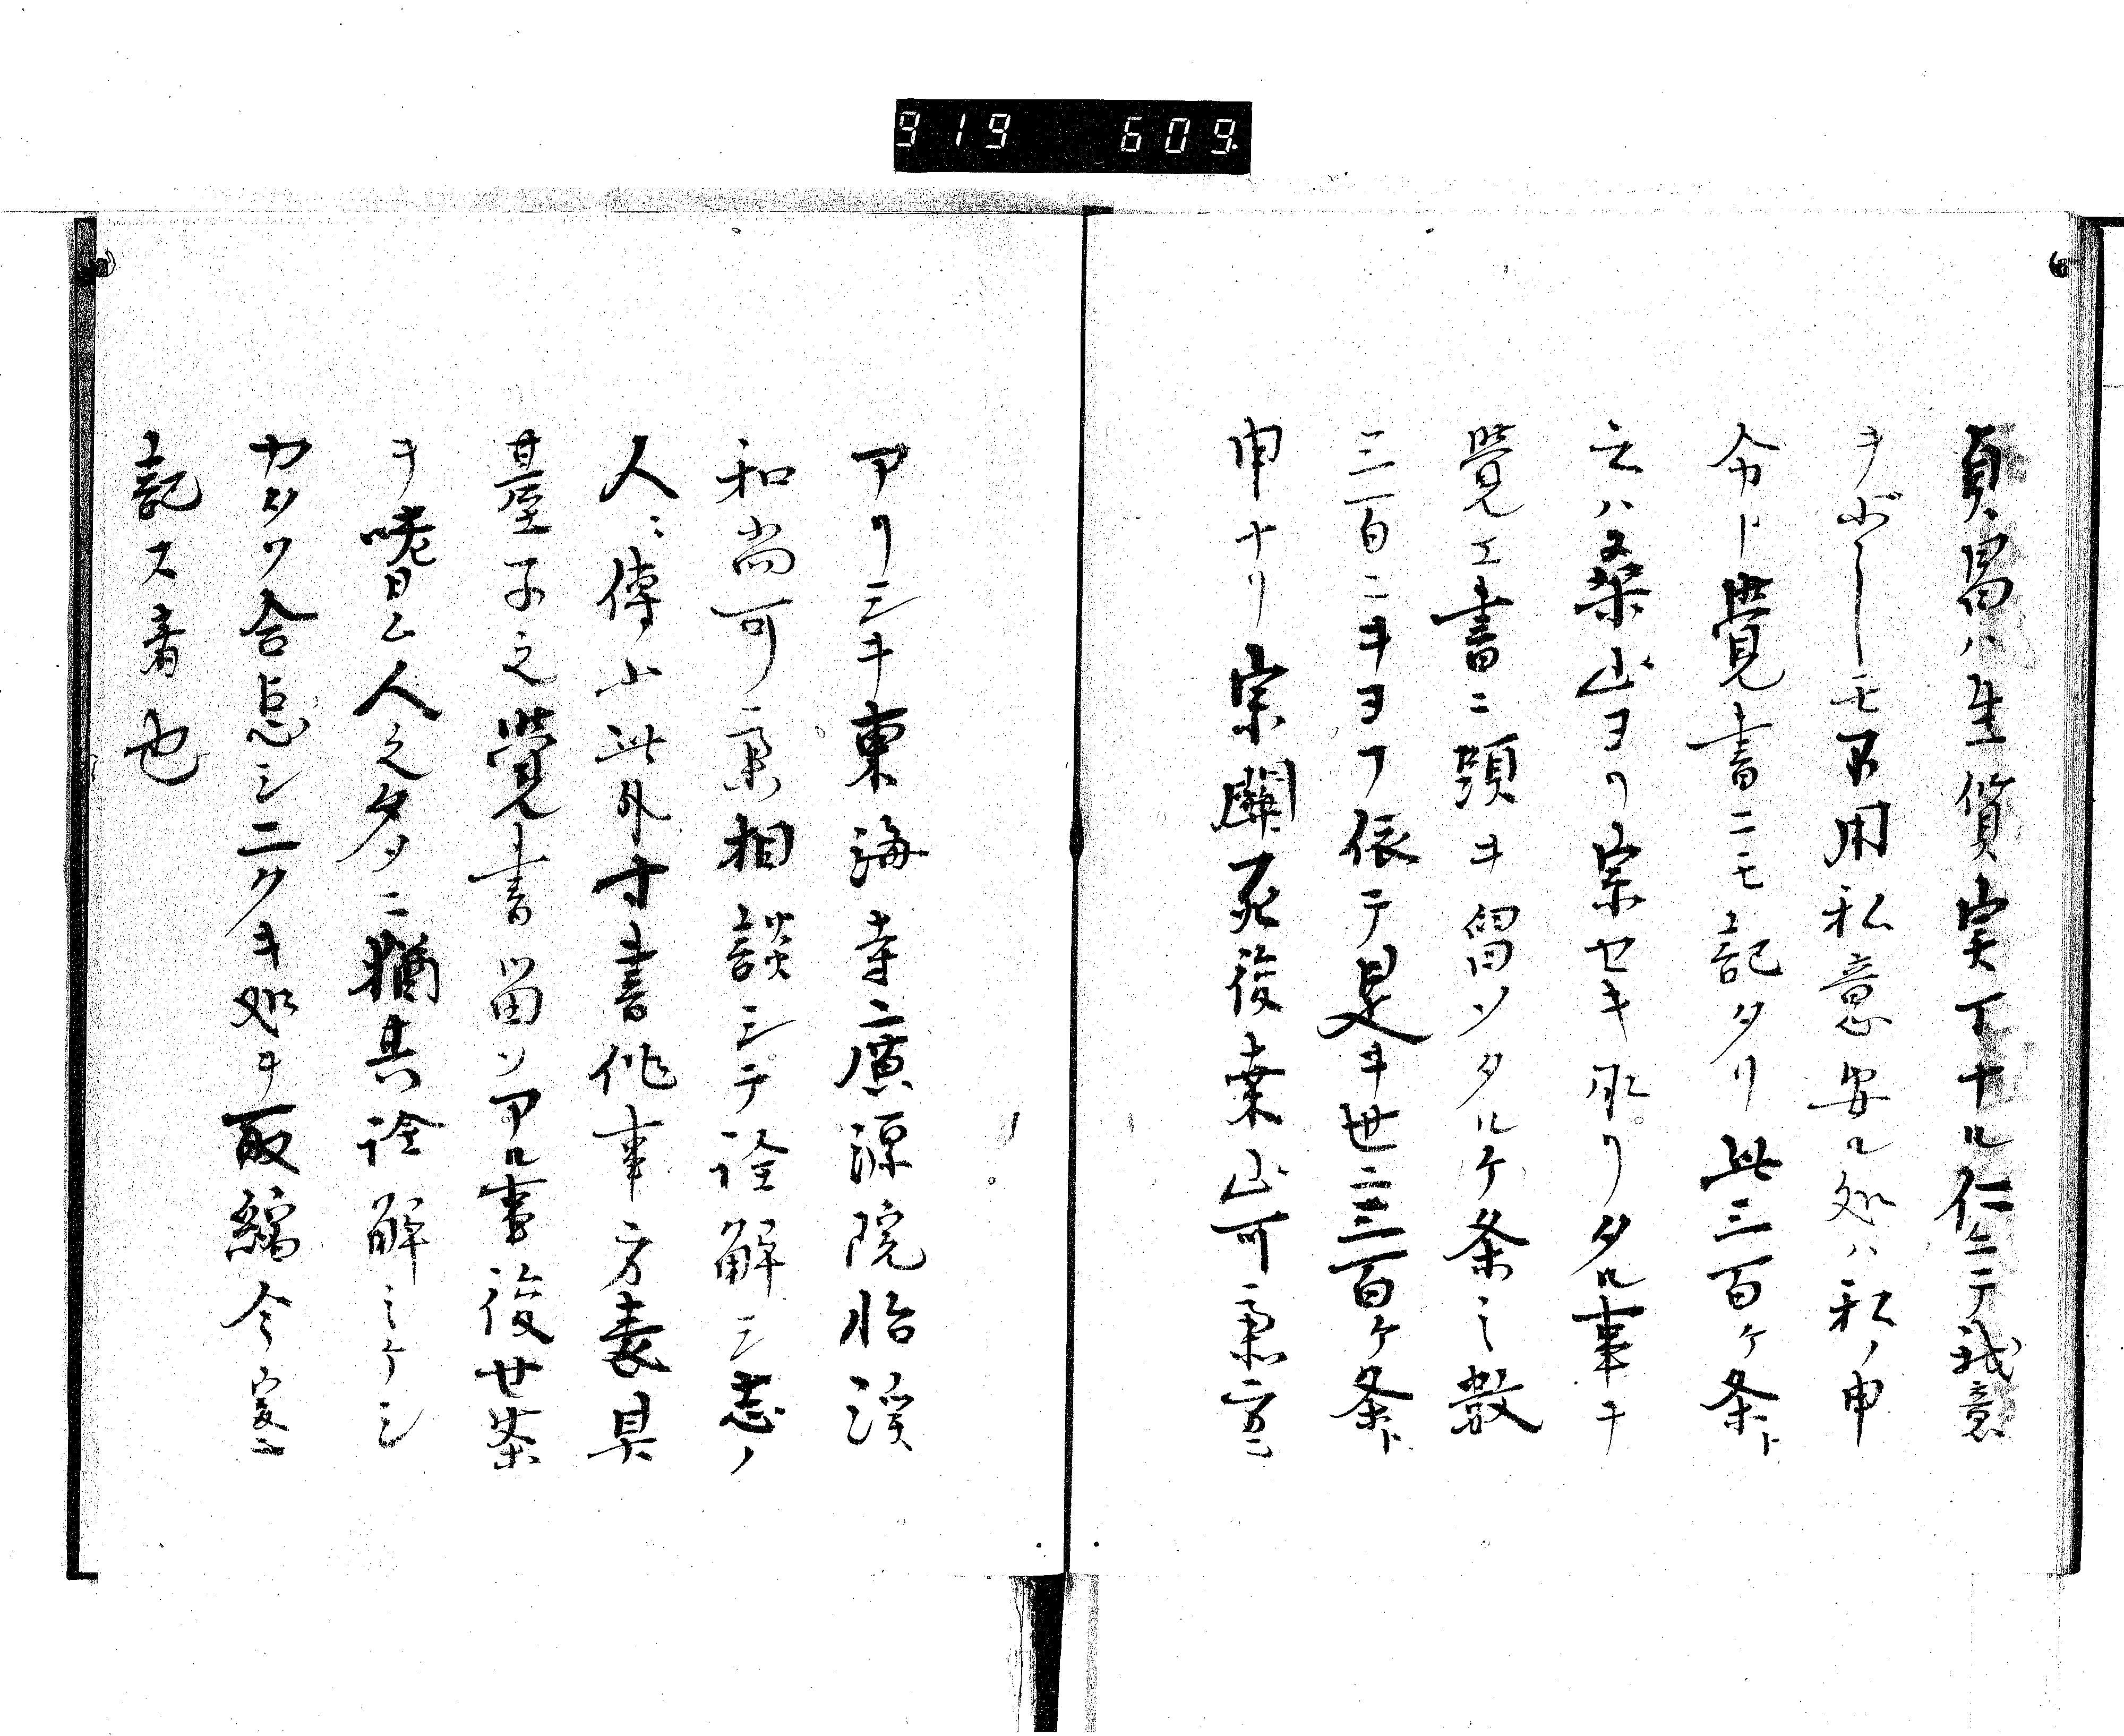 919 609
貞昌ハ生質実丁ナル仁ニテ我意
ヲ少シモ不用私意安ル処ハ私ノ申
分ト覚書ニモ記タリ此三百ケ条ト
云ハ桑山ヨリ宗セキ承リタル事ヲ
覚エ書ニ頭ヲ留ソタルケ条之数
三百ニヲヨフ依テ是ヲ世ニ三百ケ条ト
申ナリ宗関死後桑山可斎方ニ
アリシヲ東海寺ニ廣源院怡渓
和尚可斎相談シテ詮解シ志ノ
人ニ傳ふ此外寸書作事方表具
臺子之覚書留ソアル事後世茶
ヲ嗜ム人之タメニ猶其詮解シケシ
カタク合点シニクキ処ヲ取縮今爰ニ
記ス者也